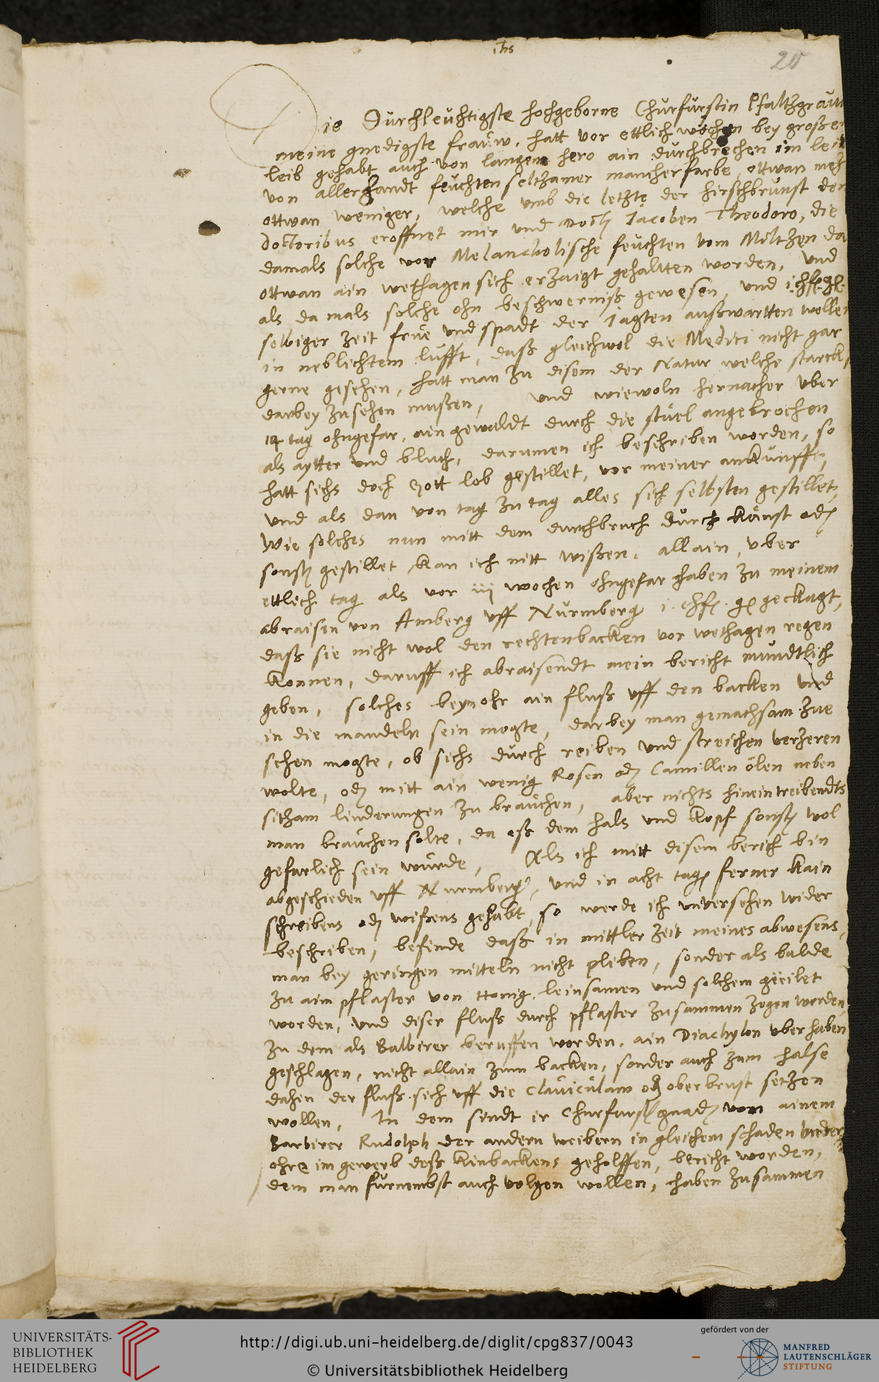 ihs
20
Die Durchleuchtigste hochgeborne Churfürstin Pfaltzgräuin
meine gnedigste fraüw, hatt vor ettlich wochen bey großem
leib gehabt auch von langem hero ain durchbrechen im leib
von allerhandt feuchten selthamer mancher farbe, ettwan mehr
ettwan weniger, welche umb die letzte der hirschbrunst den
Doctoribus eroffnet mir und Doch Jacoben Theodoro, die
damals solche vor Melancholische feuchten vom Miltzen da
ettwan ain wethagen sich erzaigt gehaltten worden, und
als damals solche ohn beschwerniß gewesen, und
selbiger zeit frue und spadt der Jagten außwartten wollen
in neblichtem lufft, daß gleichwol die Medici nicht gar
gerne gesehen, hatt man zu disem der Natur welche starck
darbey zusehen mußen, und wiewoln hernacher uber
14 tag ohngefar, ain gewaldt durch die stüel angebrochen
als aytter und bluth, darumen ich beschriben worden, so
hatt sichs doch Gott lob gestillet, vor meiner ankunfft,
und als dan von tag zu tag alles sich selbsten gestillet,
Wie solches nun mitt dem durchbruch durch kunst od
sonst gestillet, kan ich nitt wißen. allain, uber
ettlich tag als vor iij wochen ohngefar haben zu meinem
abraisen von Amberg uff Nurmberg i. chf. g. geclagt,
daß sie nicht wol den rechten backen vor wethagen regen
konnen, daruff ich abraisendt mein bericht mundtlich
geben, solches beym ohr ain fluß uff den backen und
in die mandeln sein mogte, darbey man gemachsam zue
sehen mogte, ob sichs durch reiben und streichen verzeren
wolte, od mitt ain wenig Rosen od Camillen ölen neben
linderungen zu brauchen, aber nichts hinein treibendts
man brauchen solte, da eß dem hals und kopf sonst wol
gefarlich sein würde, Als ich mitt disem bericht bin
abgeschieden uff Nurmberg, und in acht tag ferner kain
schreibens od wißens gehabt, so werde ich unversehen wider
beschriben, befinde daß in mittler zeit meines abwesens,
man bey geringen mitteln nicht pliben, sonder als balde
zu aim pflaster von Honig, leinsamen und solchem geeilet
worden, und diser fluß durch pflaster zusammen zogen worden,
zu dem als Balbirer beruffen worden, ain Diachylon uberhaben
geschlagen, nicht allain zum backen, sonder auch zum halse
dahin der fluß sich uff die Claviculam od oberbrust setzen
wollen, In dem seindt ir Churfurst gnad von ainem
Barbirer Rudolph der andern weibern in gleichem schaden underm
ohre im gewerb deß kinbackens geholffen, bericht worden,
dem man furnembst auch volgen wollen, haben zusammen
UNIVERSITÄTS-
BIBLIOTHEK
HEIDELBERG
http://digi.ub.uni-heidelberg.de/diglit/cpg837/0043
© Universitätsbibliothek Heidelberg
gefördert von der
MANFRED
LAUTENSCHLÄGER
STIFTUNG